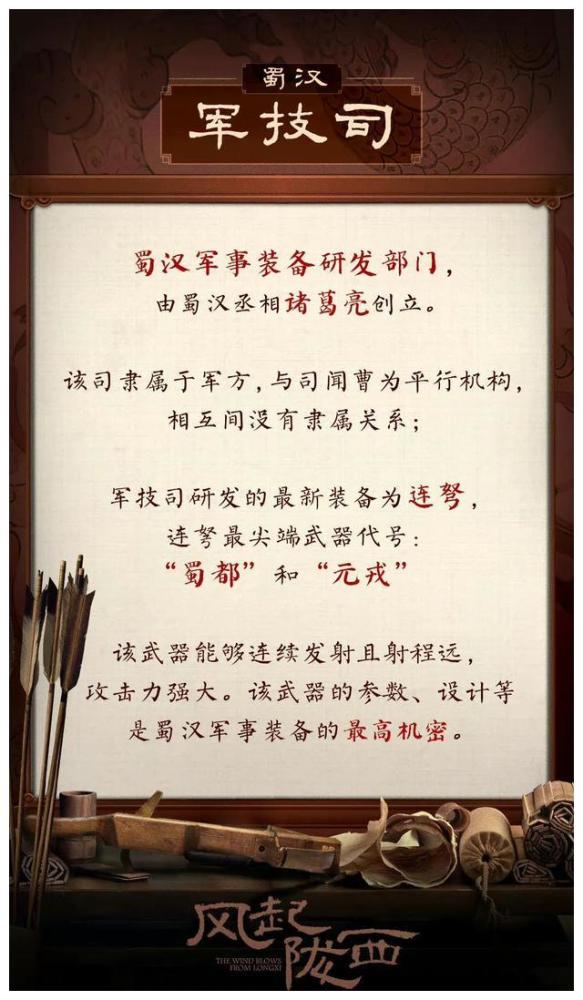 蜀汉
军技司
蜀汉军事装备研发部门，
由蜀汉丞相诸葛亮创立。
该司隶属于军方，与司闻曹为平行机构，
相互间没有隶属关系；
军技司研发的最新装备为连弩，
连弩最尖端武器代号：
“蜀都”和“元戎”
该武器能够连续发射且射程远，
攻击力强大。该武器的参数、设计等
是蜀汉军事装备的最高机密。
风起
陇西
THE WIND BLOWS
FROM LONGXI